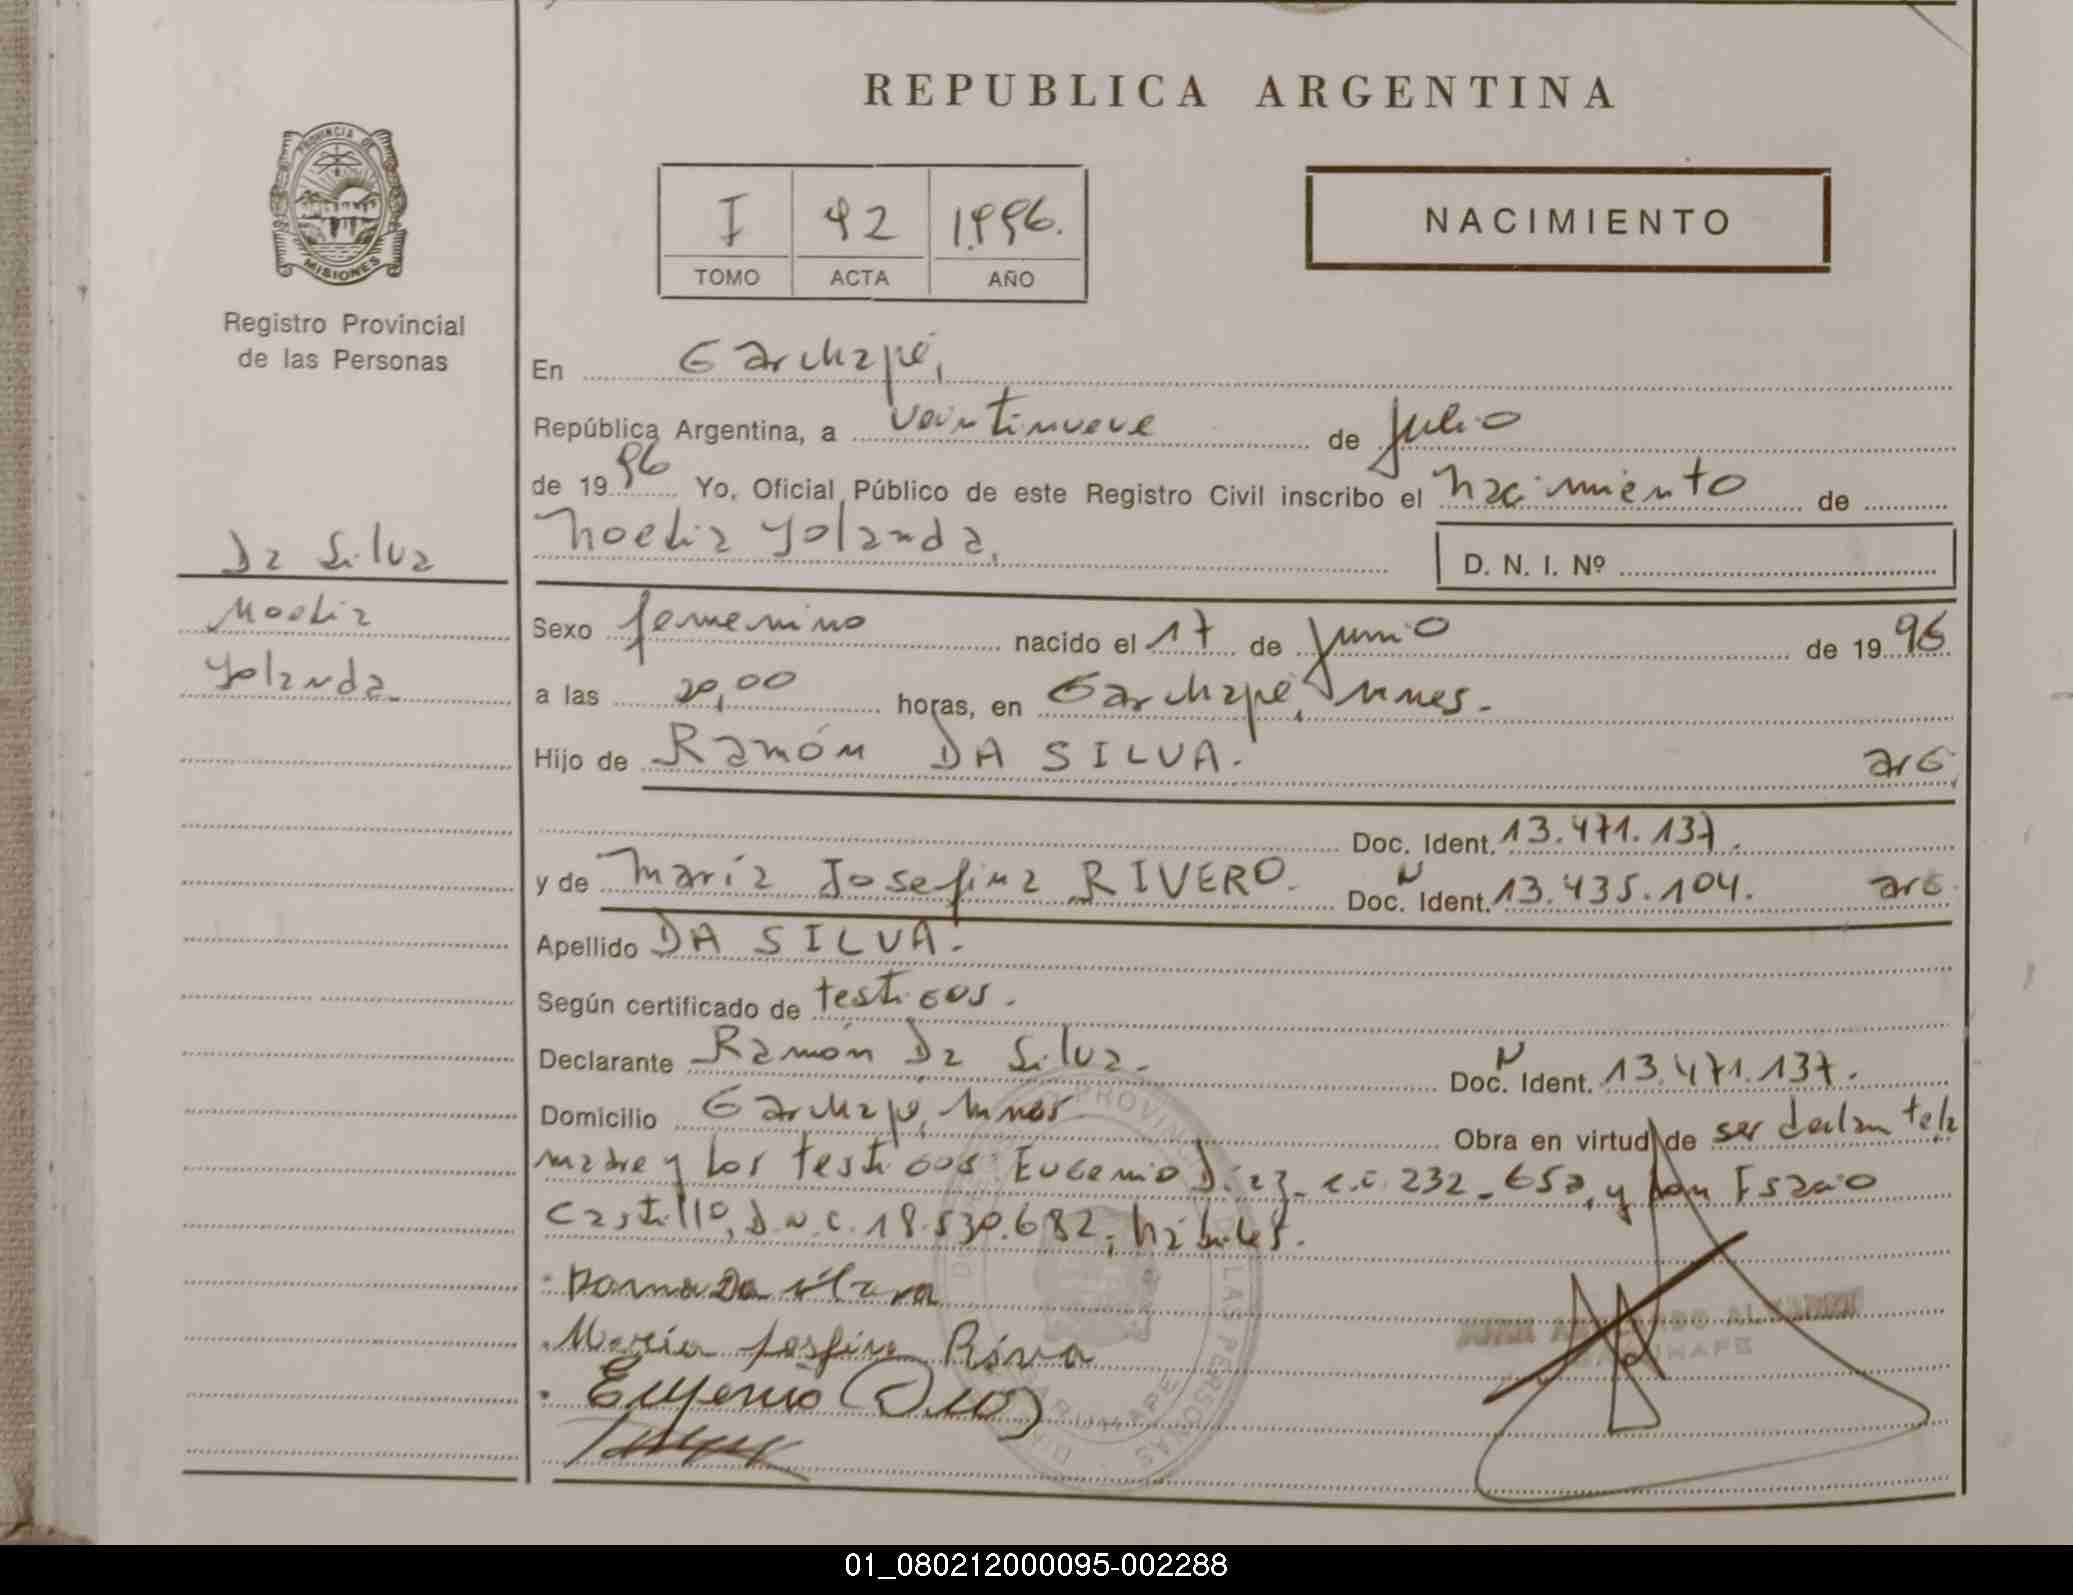 REPUBLICA ARGENTINA
PROVINCIA DE
MISIONES
Registro Provincial
de las Personas
I 92 1.996.
TOMO ACTA AÑO
NACIMIENTO
En Garuhapé,
República Argentina, a veintinueve de julio
de 1996 Yo, Oficial Público de este Registro Civil inscribo el nacimiento de
Noelia Yolanda,
D. N. I. Nº
Da Silva
Noelia
Yolanda
Sexo femenino nacido el 17 de junio de 1996
a las 20,00 horas, en Garuhapé, Mnes.
Hijo de Ramón DA SILVA. arg
Doc. Ident. 13.471.137.
y de María Josefina RIVERO. Doc. Ident. N 13.435.104. arg.
Apellido DA SILVA.
Según certificado de testigos.
Declarante Ramón Da Silva. Doc. Ident. N 13.471.137.
Domicilio Garuhapé, Mnes Obra en virtud de ser declarante la
madre y los testigos: Eugenio Díaz c.i. 232_652, y
Castillo, d.n.i. 18.530.682, hábiles.
Da
María Josefina
Eugenio
GARUHAPE
LAS PERSONAS
01_080212000095-002288